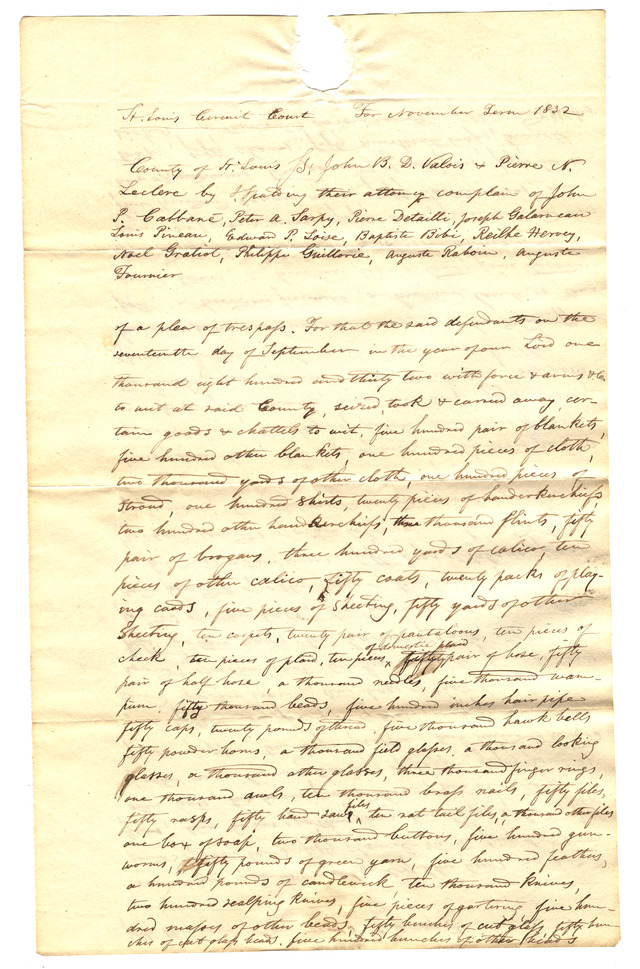 St. Louis Circuit Court For November Term 1832
County of St. Louis SS, John B. D. Valois & Pierre N.
Leclerc by Spalding their attorney complain of John
P. Cabbané, Peter A. Sarpy, Pierre Detailli, Joseph Galarneau
Louis Pineau, Edward P. Loise, Baptiste Bibi, Reilhe Hervey,
Noel Gratiol, Philippe Guillorie, Auguste Raboin, Auguste
Fournier
of a plea of trespass. For that the said defendants on the
seventeenth day of September in the year of our Lord one
thousand eight hundred and thirty two with force & arms &c
to wit at said County, seized, took & carried away, cer-
tain goods & chattels to wit, five hundred pair of blankets,
five hundred other blankets, one hundred pieces of cloth,
two thousand yards of other cloth, one hundred pieces of
stroud, one hundred shirts, twenty pieces of handkerchiefs
two hundred other handkerchiefs, three thousand flints, fifty
pair of brogans, three hundred yards of calico, ten
pieces of other calico, fifty coats, twenty packs of play-
ing cards, five pieces of sheeting, fifty yards of other
sheeting, ten carpets, twenty pair of pantaloons, ten pieces of
check, ten pieces of plaid, ten pieces of domestic plaid fifty pair of hose, fifty
pair of half hose, a thousand needles, five thousand wam-
pum, fifty thousand beads, five hundred inches hair pipe
fifty caps, twenty pounds of thread, five thousand hawk bells
fifty powder horns, a thousand field glasses, a thousand looking
glasses, a thousand other glasses, three thousand finger rings,
one thousand awls, ten thousand brass nails, fifty files,
fifty rasps, fifty hand saw files, ten rat tail files, a thousand other files
one box of soap, two thousand buttons, five hundred gun-
worms, fifty pounds of green yarn, five hundred feathers,
a hundred pounds of candlewick, ten thousand knives,
two hundred scalping knives, five pieces of gartering, five hun-
dred masses of other beads, fifty bunches of cut glass, fifty bun-
ches of cut glass beads, five hundred bunches of other beads